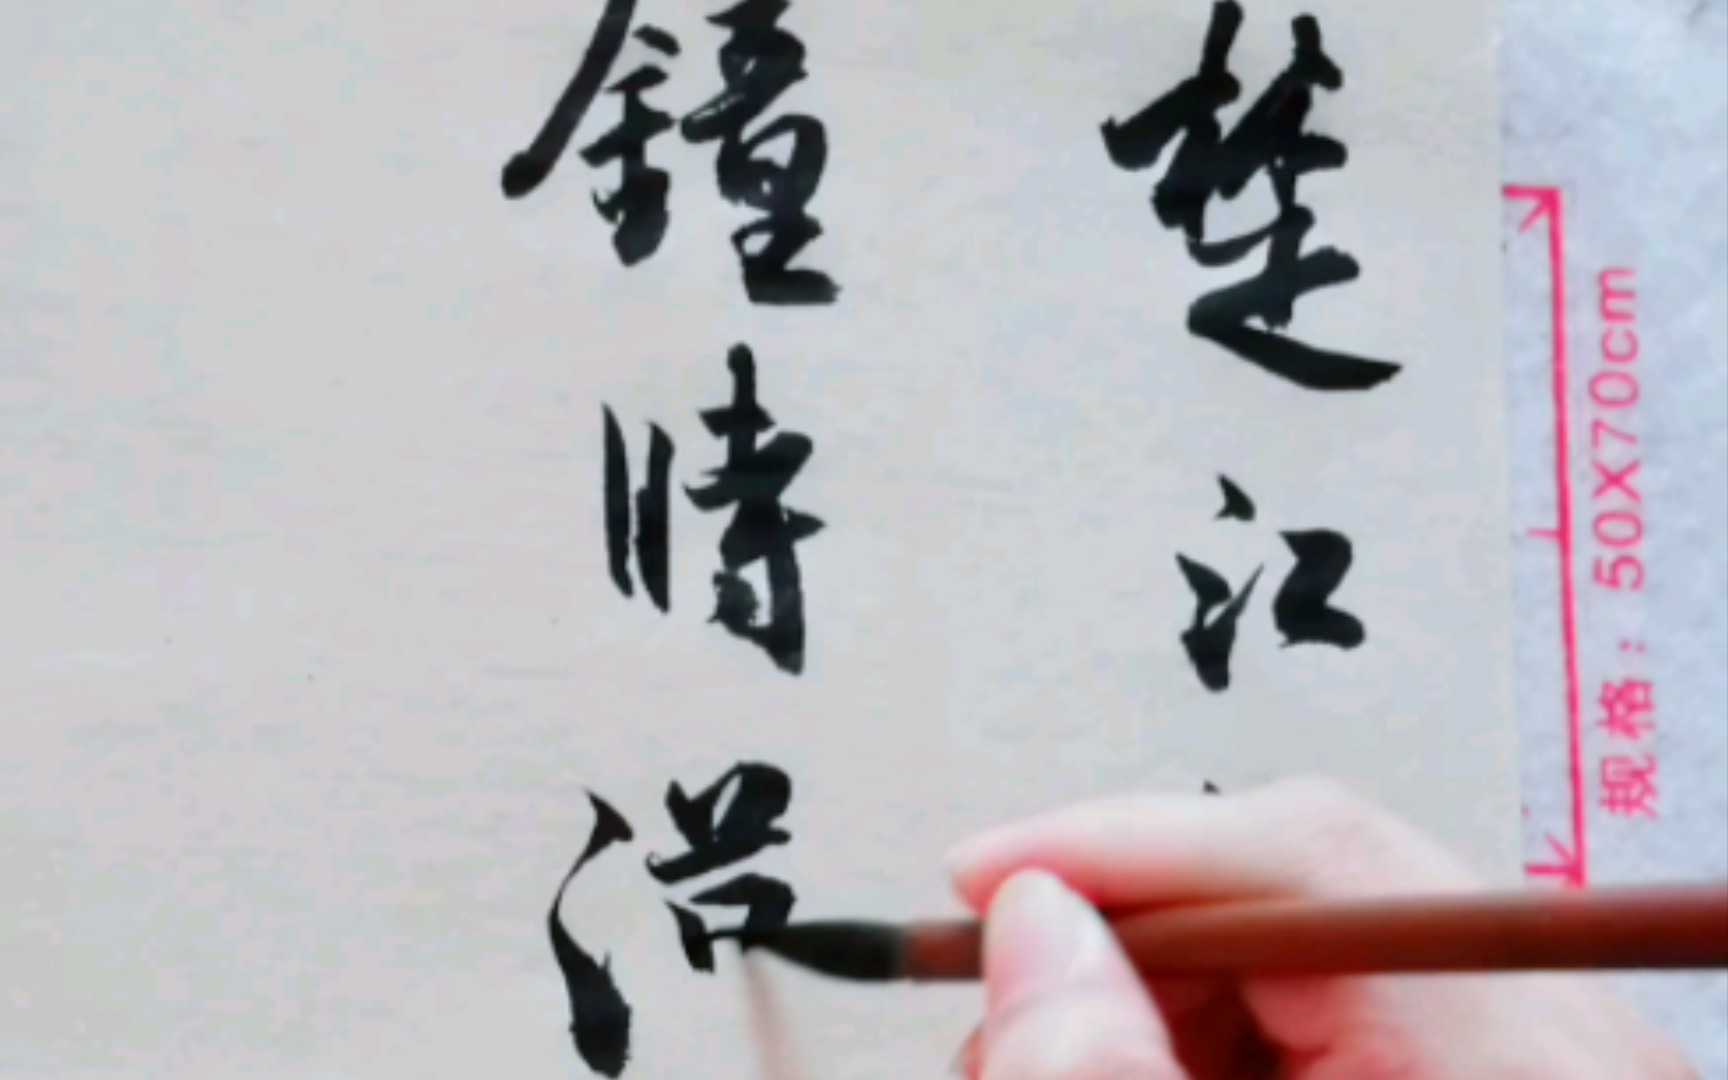 楚江
鐘時
规格：50X70cm